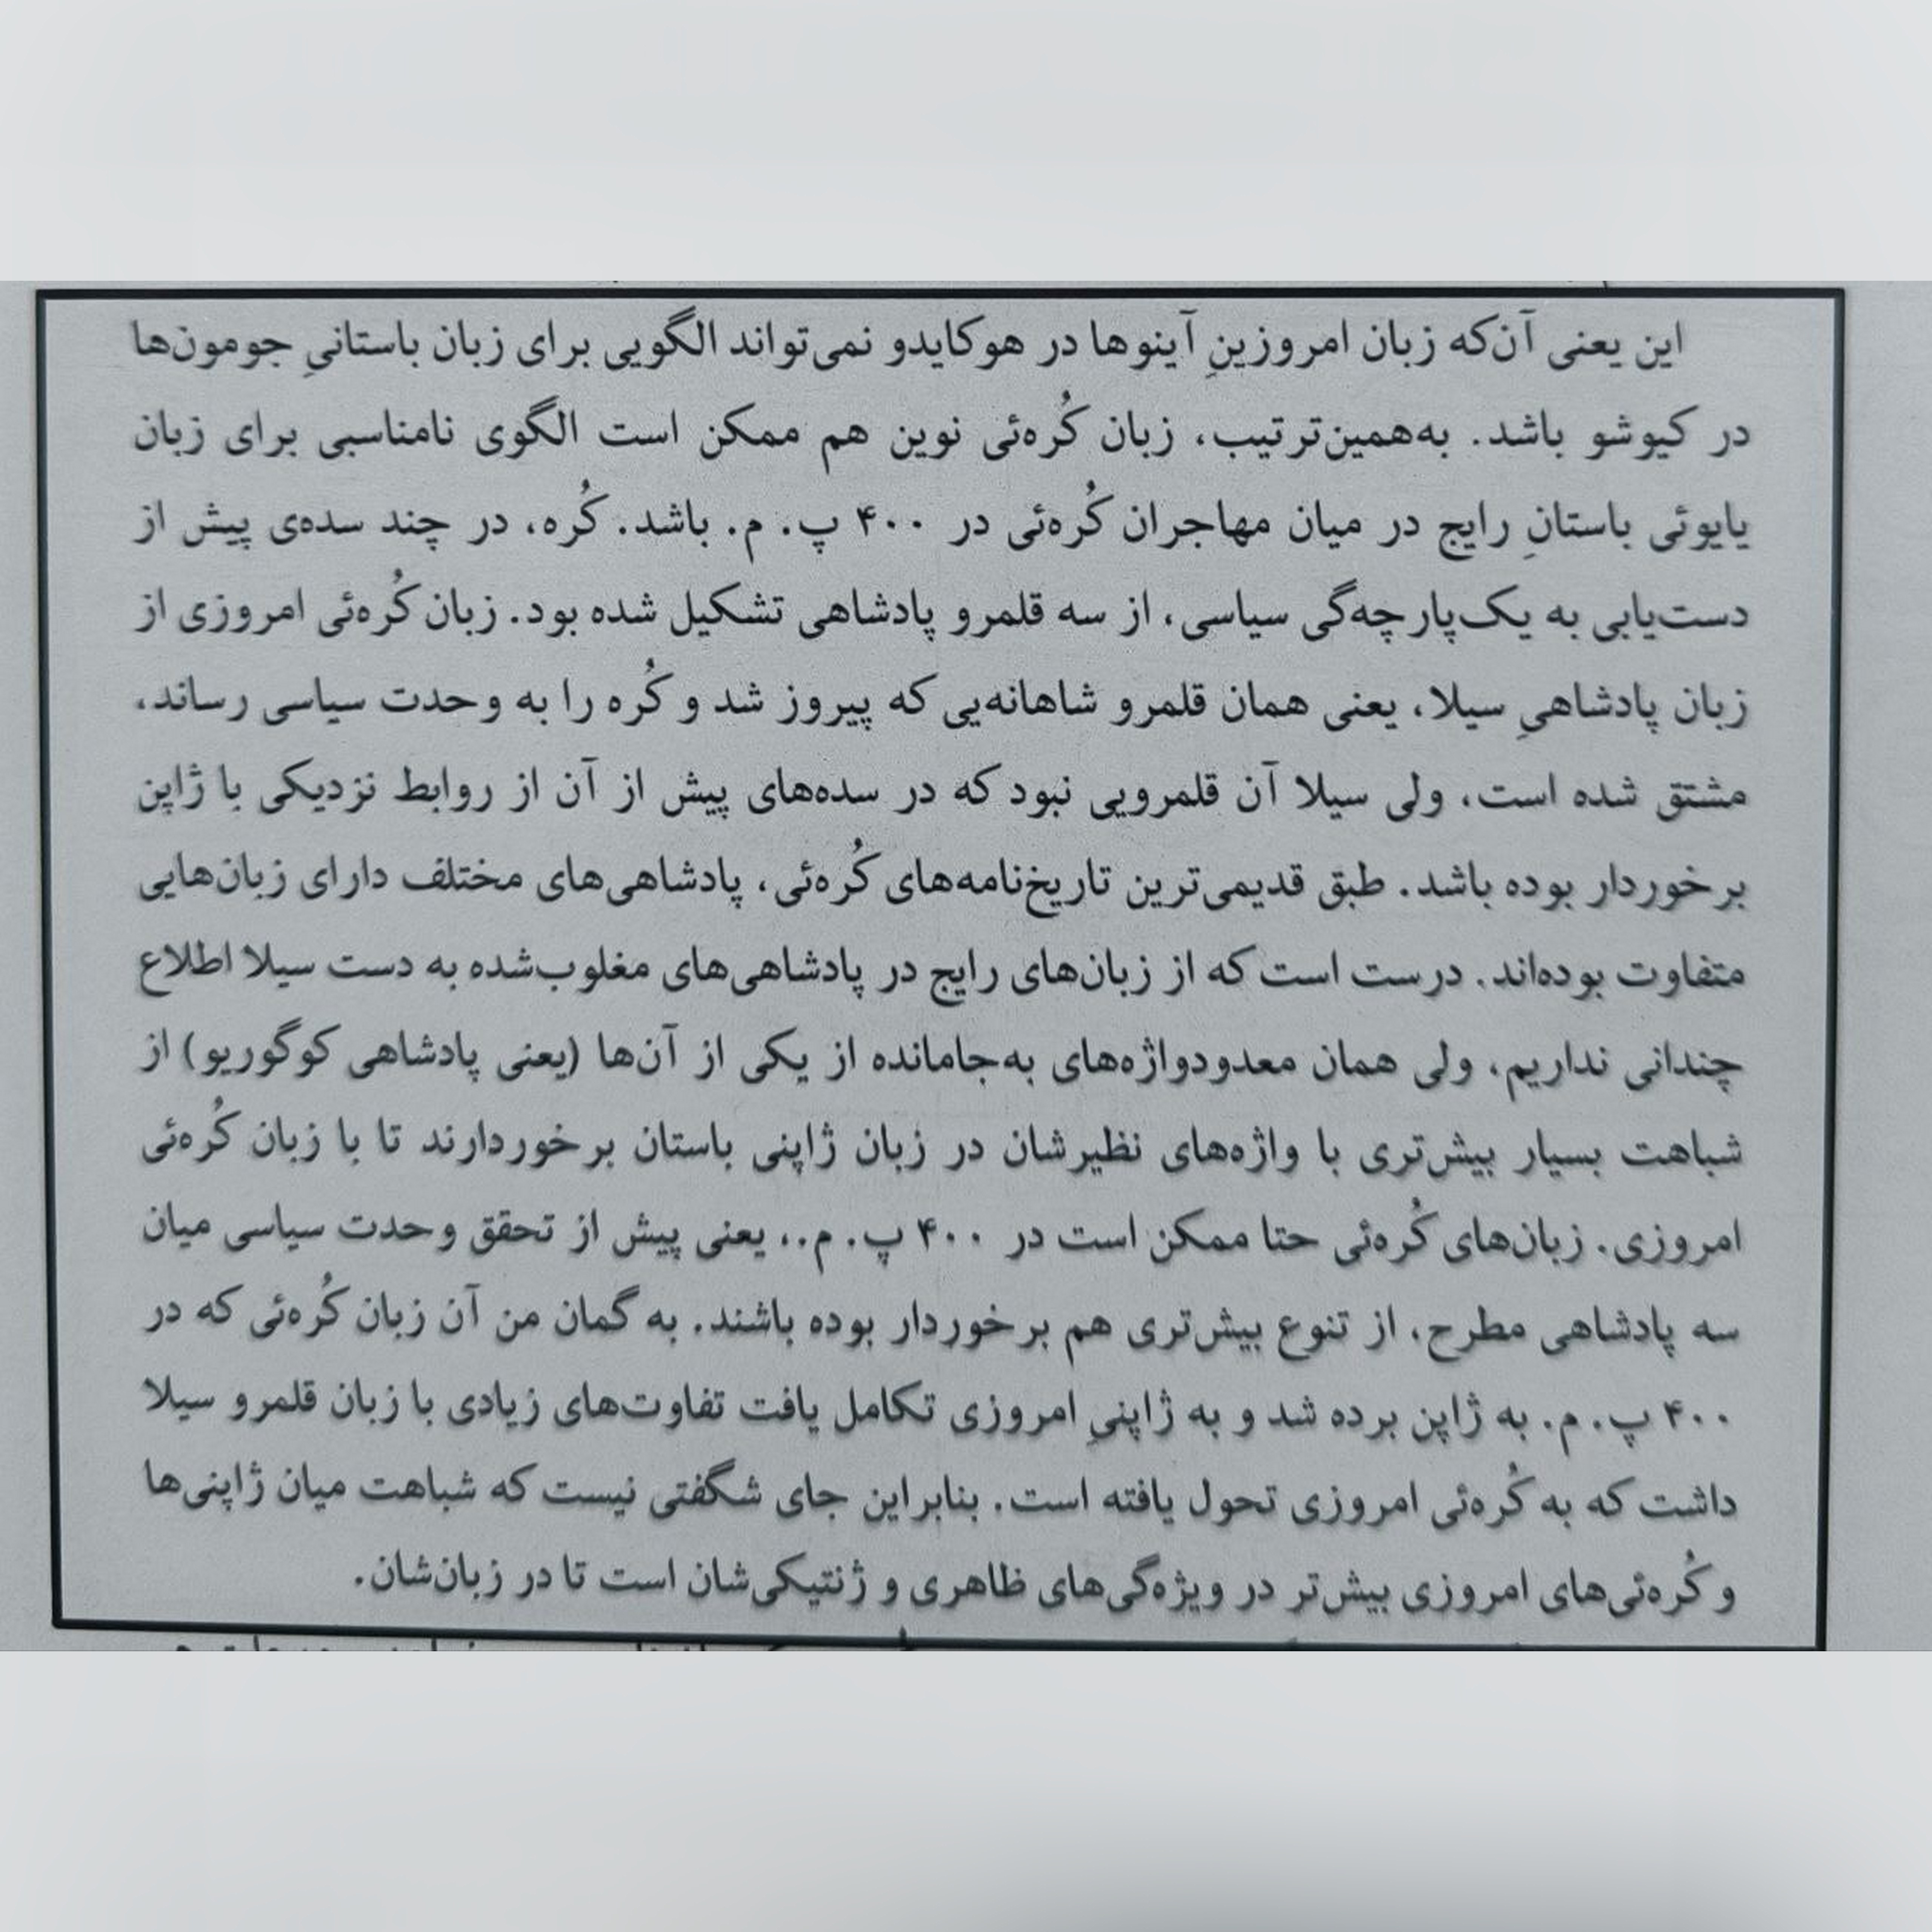 این یعنی آن‌که زبان امروزینِ آینوها در هوکایدو نمی‌تواند الگویی برای زبان باستانیِ جومون‌ها
در کیوشو باشد. به‌همین‌ترتیب، زبان کُره‌ئی نوین هم ممکن است الگوی نامناسبی برای زبان
یایوئی باستانِ رایج در میان مهاجران کُره‌ئی در ۴۰۰ پ. م. باشد. کُره، در چند سده‌ی پیش از
دست‌یابی به یک‌پارچه‌گی سیاسی، از سه قلمرو پادشاهی تشکیل شده بود. زبان کُره‌ئی امروزی از
زبان پادشاهیِ سیلا، یعنی همان قلمرو شاهانه‌یی که پیروز شد و کُره را به وحدت سیاسی رساند،
مشتق شده است، ولی سیلا آن قلمرویی نبود که در سده‌های پیش از آن از روابط نزدیکی با ژاپن
برخوردار بوده باشد. طبق قدیمی‌ترین تاریخ‌نامه‌های کُره‌ئی، پادشاهی‌های مختلف دارای زبان‌هایی
متفاوت بوده‌اند. درست است که از زبان‌های رایج در پادشاهی‌های مغلوب‌شده به دست سیلا اطلاع
چندانی نداریم، ولی همان معدودواژه‌های به‌جامانده از یکی از آن‌ها (یعنی پادشاهی کوگوریو) از
شباهت بسیار بیش‌تری با واژه‌های نظیرشان در زبان ژاپنی باستان برخوردارند تا با زبان کُره‌ئی
امروزی. زبان‌های کُره‌ئی حتا ممکن است در ۴۰۰ پ. م.. یعنی پیش از تحقق وحدت سیاسی میان
سه پادشاهی مطرح، از تنوع بیش‌تری هم برخوردار بوده باشند. به گمان من آن زبان کُره‌ئی که در
۴۰۰ پ. م. به ژاپن برده شد و به ژاپنیِ امروزی تکامل یافت تفاوت‌های زیادی با زبان قلمرو سیلا
داشت که به کُره‌ئی امروزی تحول یافته است. بنابراین جای شگفتی نیست که شباهت میان ژاپنی‌ها
و کُره‌ئی‌های امروزی بیش‌تر در ویژه‌گی‌های ظاهری و ژنتیکی‌شان است تا در زبان‌شان.